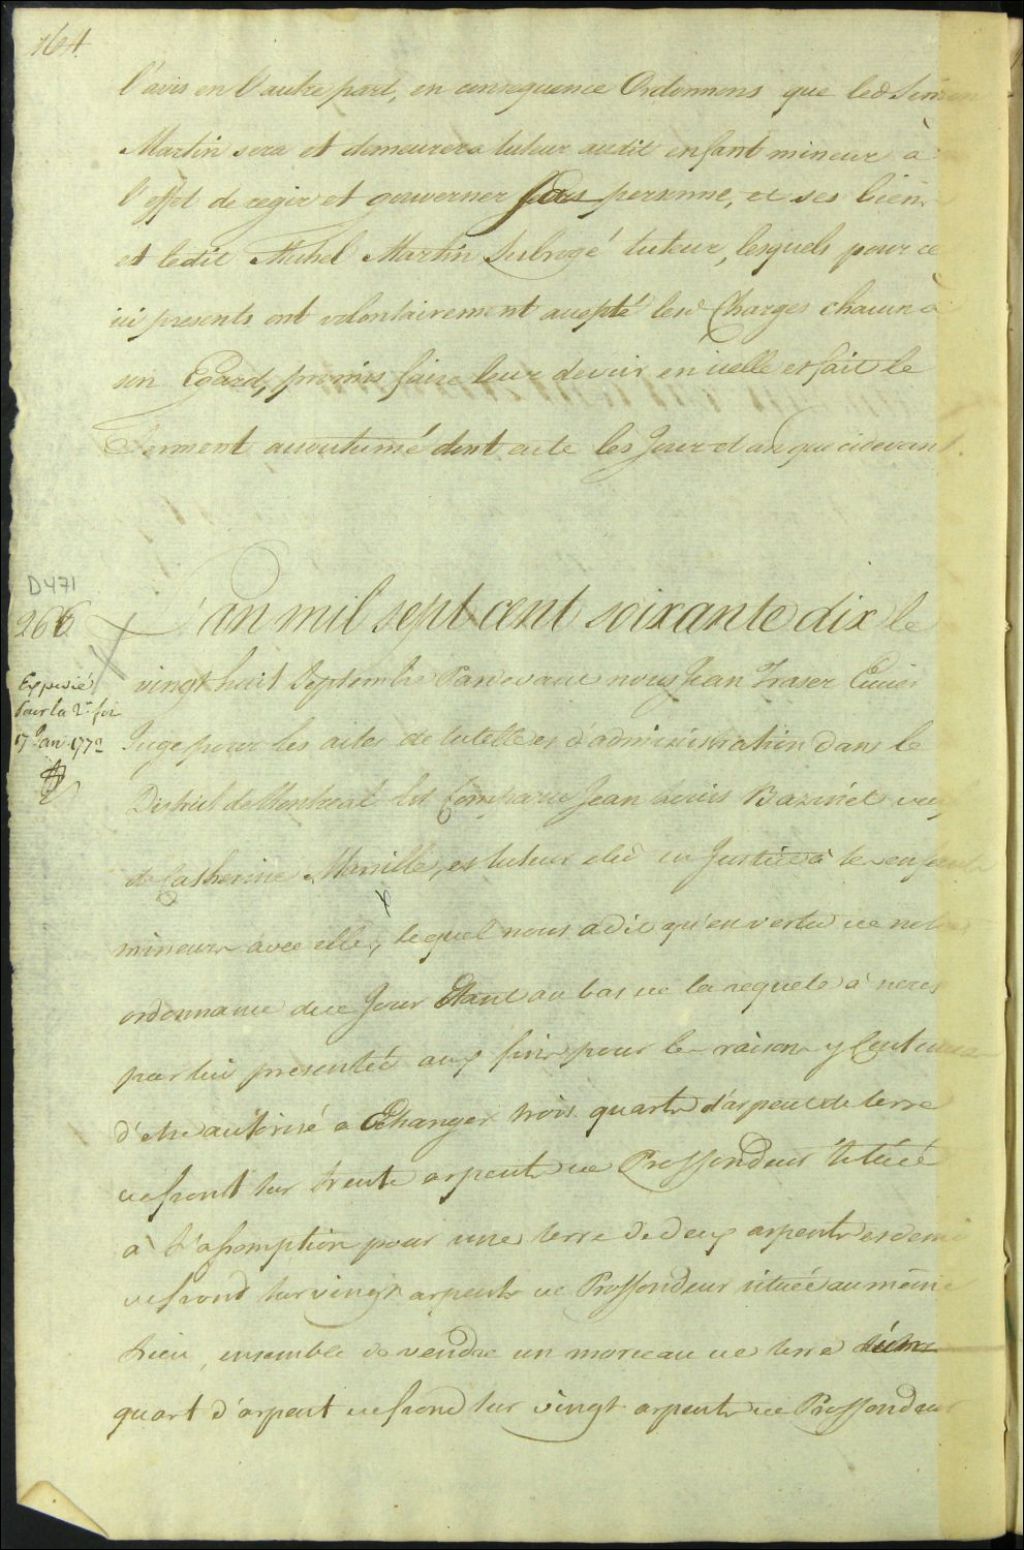 164
l'avis en l'autre part, en consequence Ordonnons que led Simon
Martin sera et demeurera tuteur audit enfant mineur à
l'effet de regir et gouverner personne, et ses biens
et ledit Michel Martin Subrogé tuteur, lesquels pour ce
ici presents ont volontairement accepté lesd Charges chacun à
son Egard, promis faire leur devoir en icelle et fait le
Serment accoutumé dont acte les Jour et an que cidevant.
D471
266
L'an mil sept cent soixante dix le
Expedié
pour la 2e foi
17 Jan 1772
vingt huit Septembre Pardevant nous Jean Fraser Ecuier
Juge pour les actes de tutelle et d'administration dans le
District de Montreal Est Comparu Jean Louis Bazinet veuf
de Catherine Marsille, et tuteur elû en Justice à le enfants
mineurs avec elle, lequel nous a dit qu'en vertu de notre
ordonnance de ce Jour Etant au bas de la requete à nous
par lui presentée aux fins pour le raisons y Contenues
d'etre autorisé a Echanger trois quarts d'arpent de terre
de front sur trente arpents de Proffondeur situéé
à L'assomption pour une terre de deux arpents et demi
de front sur vingt arpents de Proffondeur située au même
Lieu, ensemble de vendre un morceau de terre
quart d'arpent de front sur vingt arpents de Proffondeur